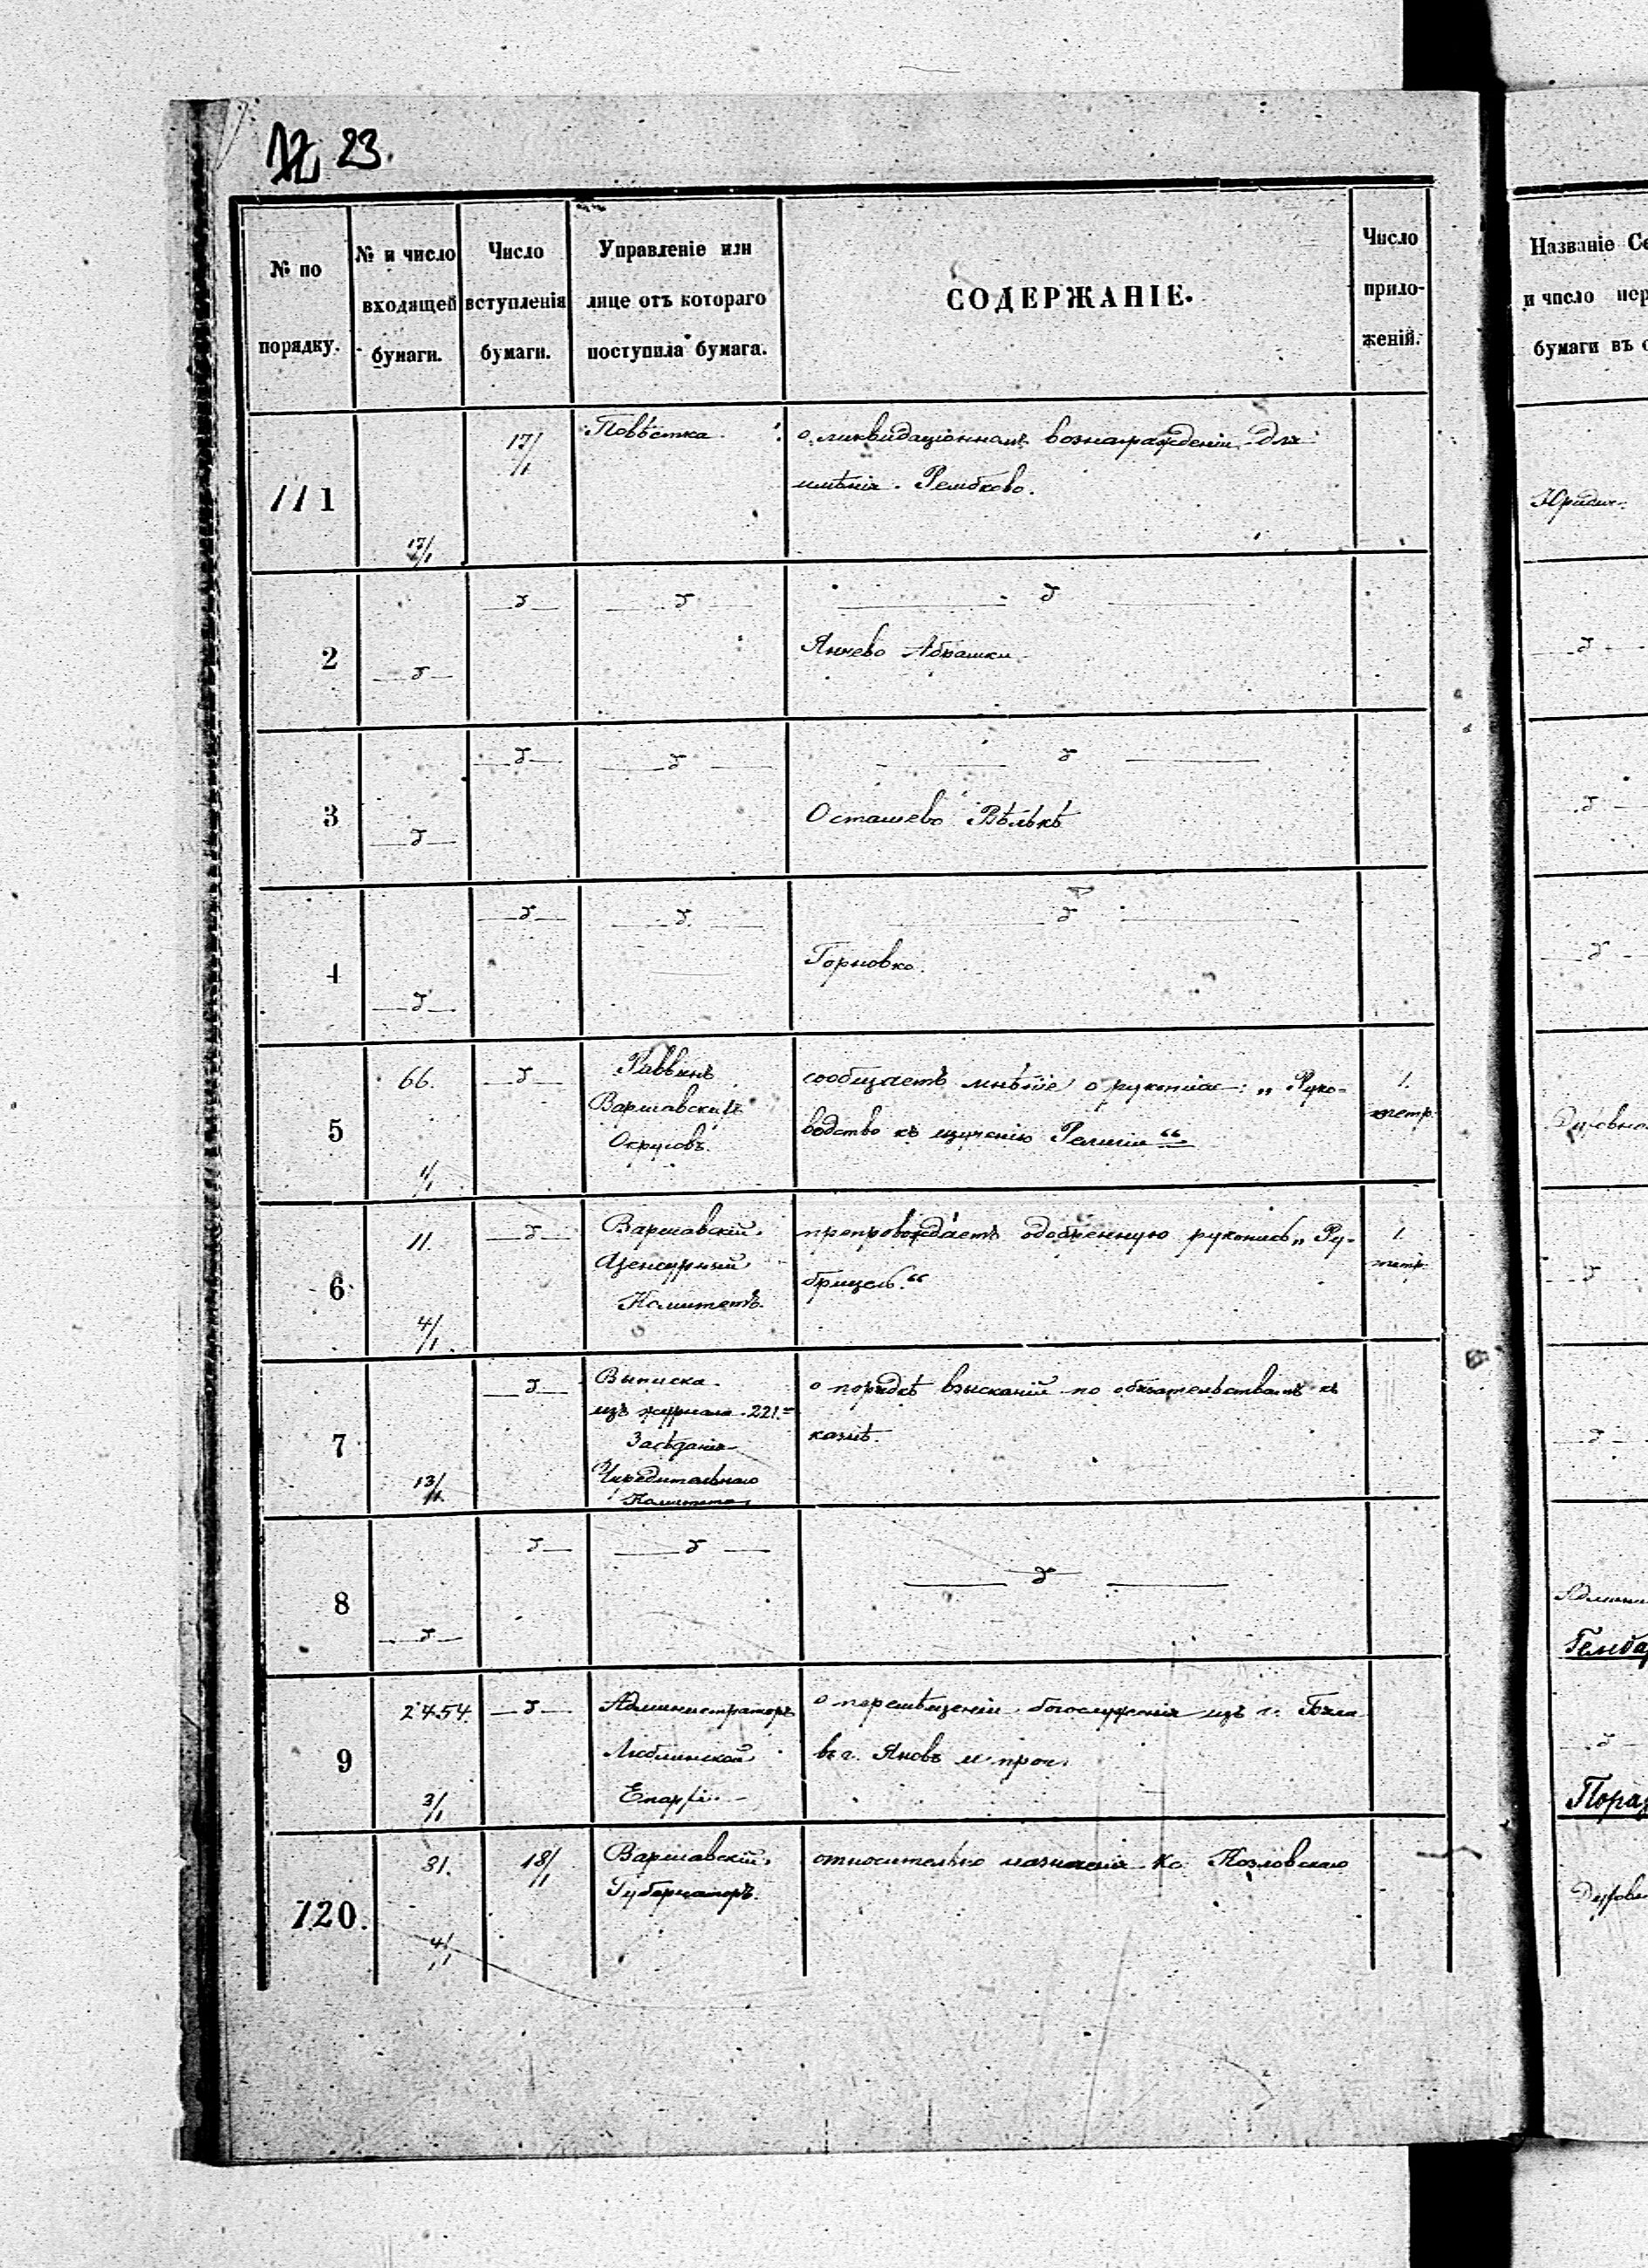 23.
№ по порядку.
№ и число входящей бумаги.
Число вступленія бумаги.
Управленіе или лице отъ котораго поступила бумага.
СОДЕРЖАНІЕ.
Число прило-женій.
Названіе Се
и число пер
бумаги въ с
111
17/1
17/1
Повѣстка
о ликвидаціонномъ вознагражденіи для
имѣнія Рембково.
Юридич.
2
Янчево Абрашки
3
Осташево Вѣлькѣ
4
Горновко.
5
66.
1/1
Раввинъ
Варшавскихъ
Округовъ.
сообщаетъ мнѣніе о рукописи: „Руко-
водство къ изученію Религіи“
1.
тетр.
Духовно
6
11.
4/1
Варшавскій
Цензурный
Комитетъ.
препровождаетъ одобренную рукопись „Ру-
брицель.“
1.
тетр.
7
13/1
Выписка
изъ журнала 221.
Засѣданія
Учредительнаго
Комитета
о порядкѣ взысканій по обязательствамъ къ
казнѣ.
8
9
2454.
3/1
Администраторъ
Люблинской
Епархіи
о перемѣщеніи богослуженія изъ г. Бяла
въ г. Яновъ и проч.
120.
31.
4/1
18/1
Варшавскій
Губернаторъ.
относительно назначенія Кс. Козловскаго
Духовн